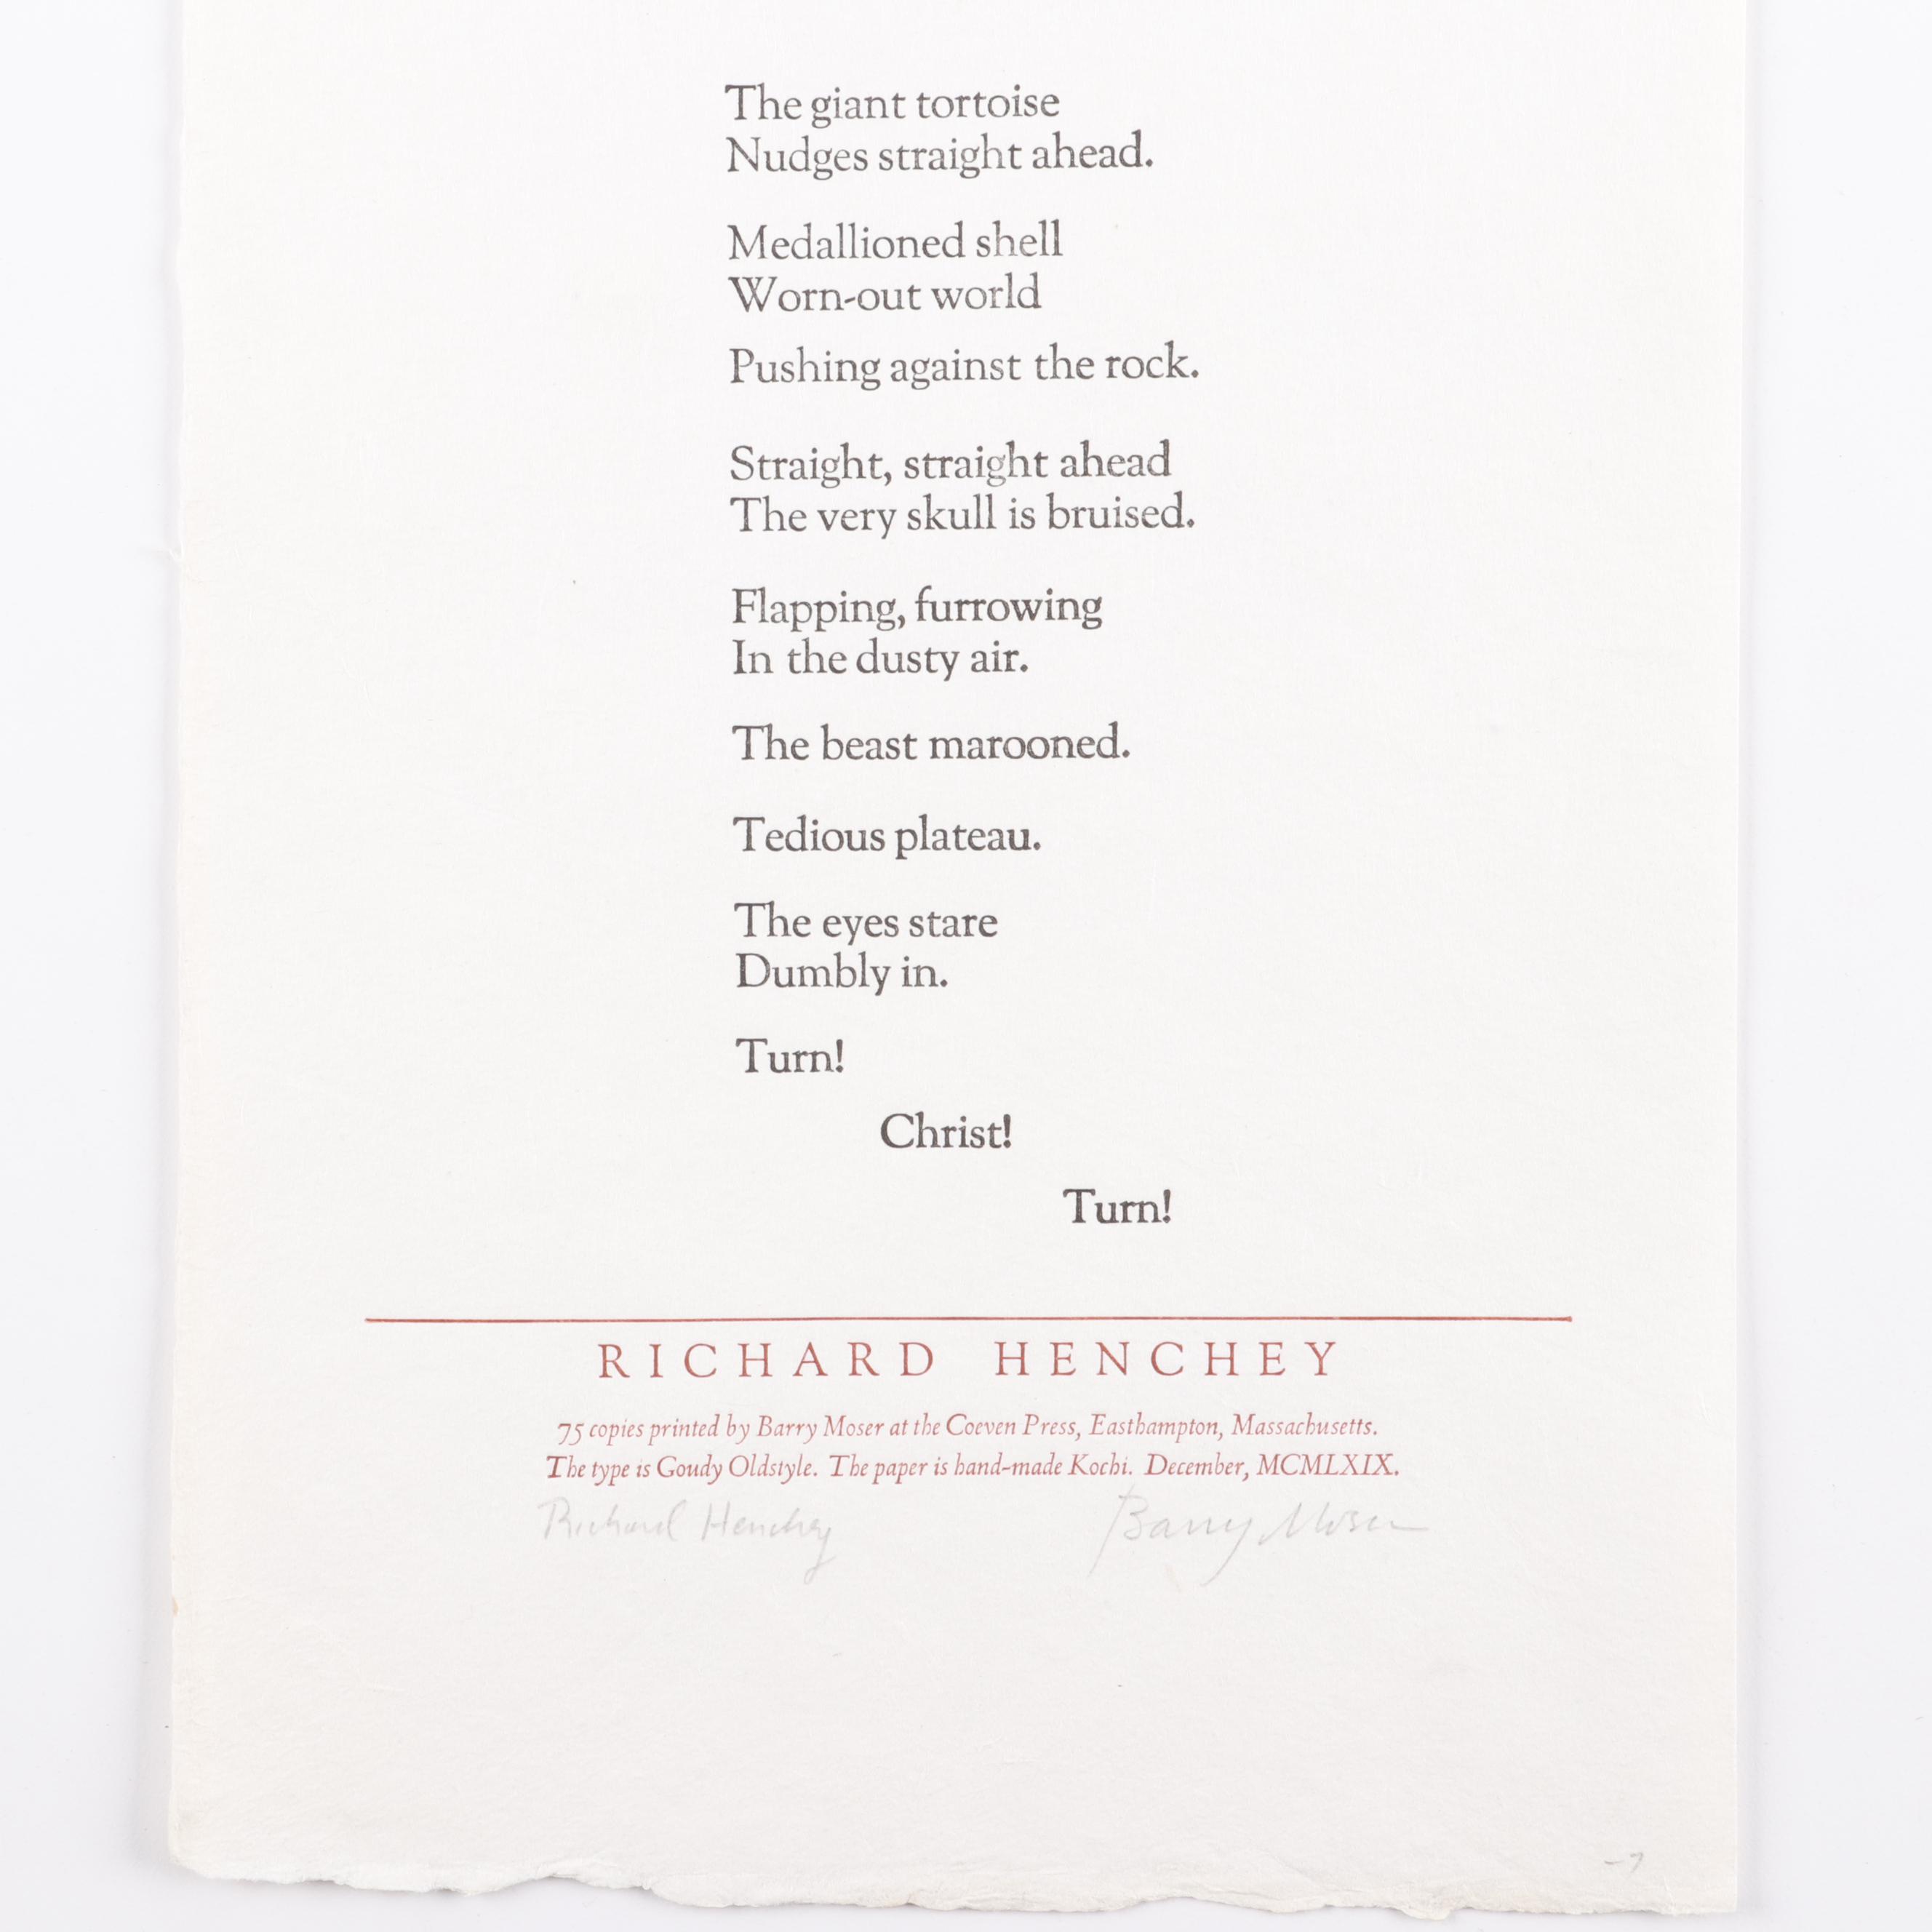 The giant tortoise
Nudges straight ahead.
Medallioned shell
Worn-out world
Pushing against the rock.
Straight, straight ahead
The very skull is bruised.
Flapping, furrowing
In the dusty air.
The beast marooned.
Tedious plateau.
The eyes stare
Dumbly in.
Turn!
Christ!
Turn!
RICHARD HENCHEY
75 copies printed by Barry Moser at the Coeven Press, Easthampton, Massachusetts.
The type is Goudy Oldstyle. The paper is hand-made Kochi. December, MCMLXIX.
Richard Henchey Barry Moser